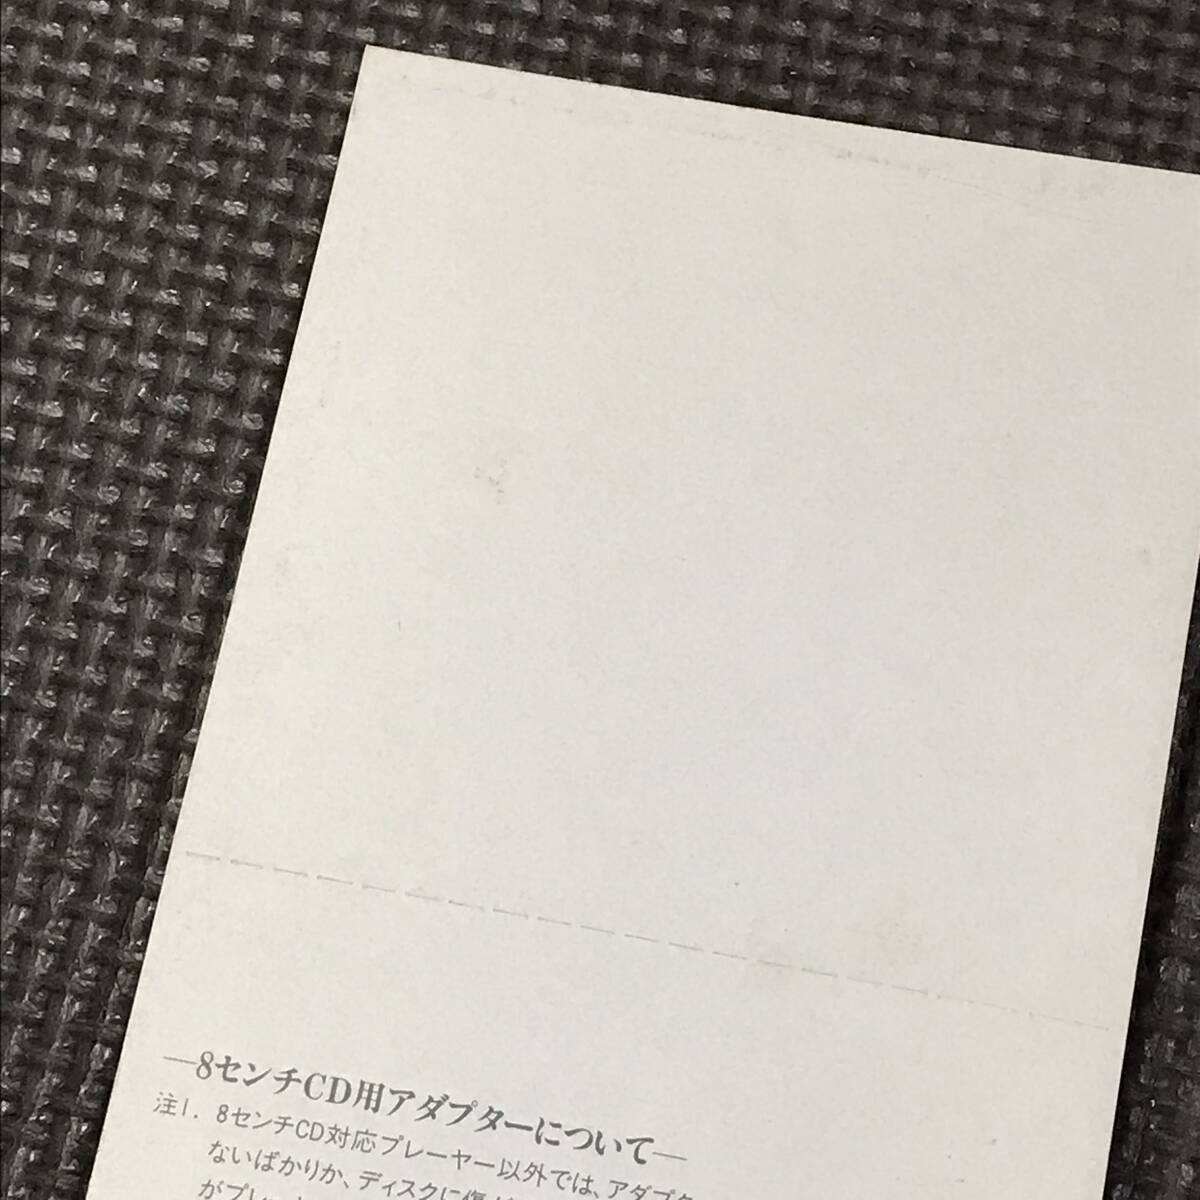 —8センチCD用アダプターについて—
注1. 8センチCD対応プレーヤー以外では、アダプタ
ないばかりか、ディスクに傷が
がプレ